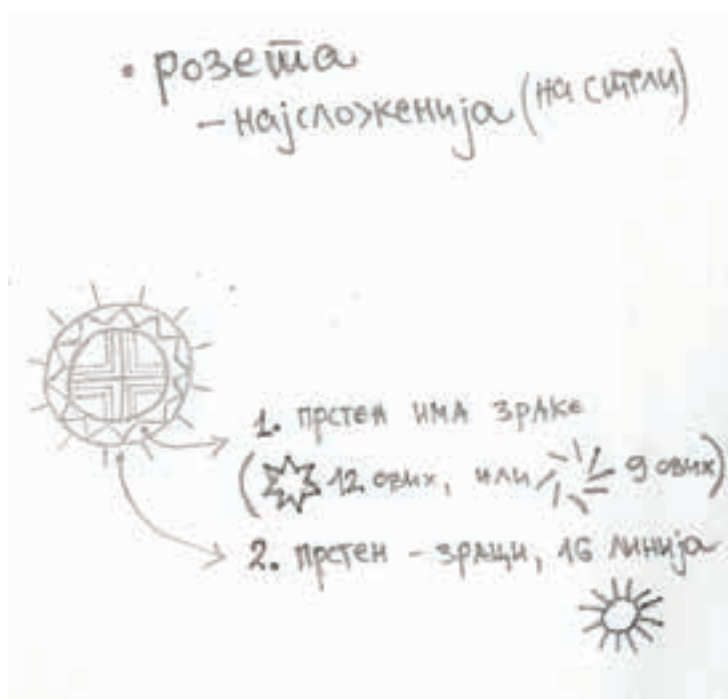 • розета
- најсложенија (на стели)
1. прстен има зраке
( 12 ових, или 9 ових)
2. прстен - зраци, 16 линија